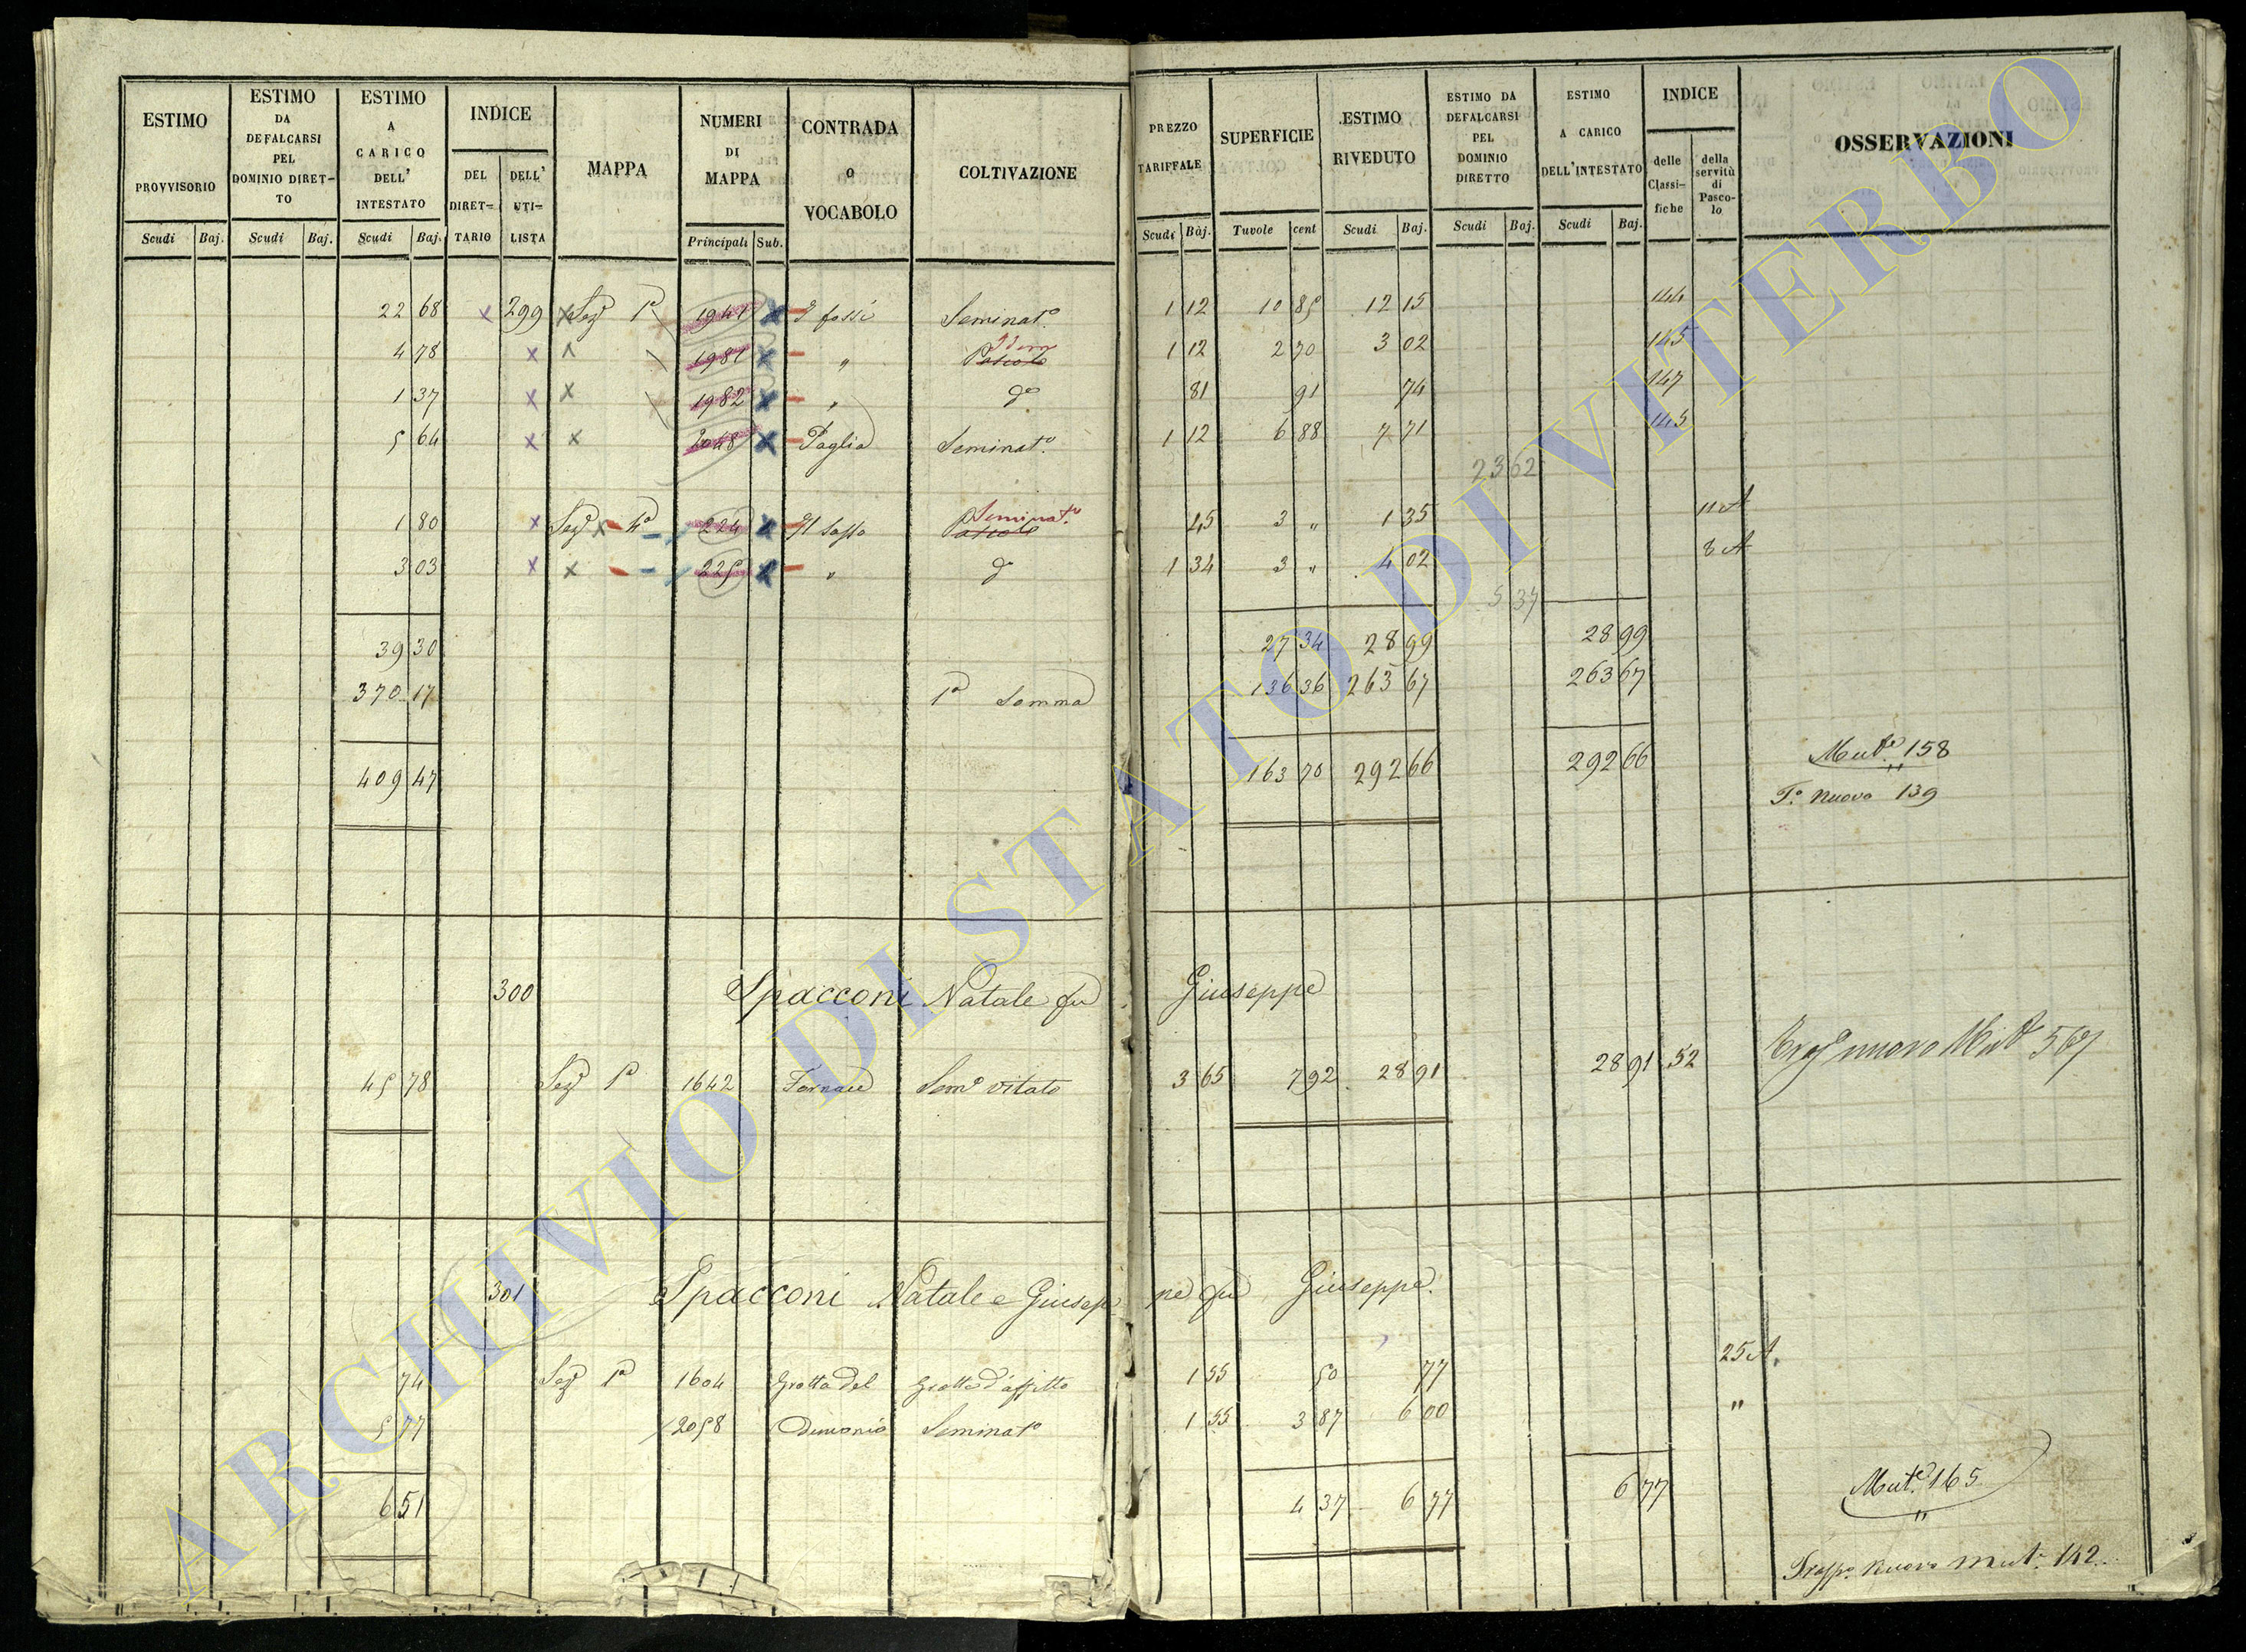 ESTIMO PROVVISORIO | ESTIMO DA DEFALCARSI PEL DOMINIO DIRETTO | ESTIMO A CARICO DELL' INTESTATO | INDICE | MAPPA | NUMERI DI MAPPA | CONTRADA O VOCABOLO | COLTIVAZIONE | PREZZO TARIFFALE | SUPERFICIE | ESTIMO RIVEDUTO | ESTIMO DA DEFALCARSI PEL DOMINIO DIRETTO | ESTIMO A CARICO DELL'INTESTATO | INDICE | OSSERVAZIONI
DEL DIRET=TARIO | DELL' UTI=LISTA | delle Classifiche | della servitù di Pascolo
Scudi | Baj. | Scudi | Baj. | Scudi | Baj. | Principali | Sub. | Scudi | Baj. | Tavole | cent | Scudi | Baj. | Scudi | Baj. | Scudi | Baj.
22 68 | 299 | Sezᵉ 1ª | 1941 | I fossi | Seminatº | 1 12 | 10 85 | 12 15 | 144
4 78 | 1981 | " | Pascolo Idem | 1 12 | 2 70 | 3 02 | 145
1 37 | 1982 | " | dº | 81 | 91 | 74 | 147
5 64 | 2048 | Paglia | Seminatº | 1 12 | 6 88 | 7 71 | 145
23 62
1 80 | Sezᵉ 4ª | 224 | Il Sasso | Pascolo Seminatº | 45 | 3 " | 1 35 | 11 A
3 03 | 225 | " | dº | 1 34 | 3 " | 4 02 | 8 A
5 37
39 30 | 27 34 | 28 99 | 28 99
370 17 | 1ª Somma | 136 36 | 263 67 | 263 67
409 47 | 163 70 | 292 66 | 292 66 | Mutᵉ 158
Tº nuovo 139
300 | Spacconi Natale fu Giuseppe
45 78 | Sezᵉ 1ª | 1642 | Fornace | Semº vitato | 3 65 | 7 92 | 28 91 | 28 91 | 52 | nuovo
301 | Spacconi Natale e Giuseppe fu Giuseppe.
74 | Sezᵉ 1ª | 1604 | Grotta del | Grotta d'affitto | 1 55 | 50 | 77 | 25 A.
5 77 | 2058 | Demonio | Seminatº | 1 55 | 3 87 | 6 00 | "
6 51 | 4 37 | 6 77 | 6 77 | Mutᵉ 165
Traspº nuovo mutᵉ 142
ARCHIVIO DI STATO DI VITERBO